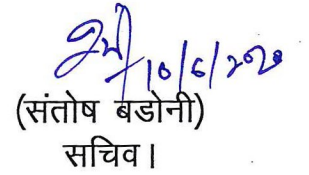 10/6/2020
(संतोष बडोनी)
सचिव।